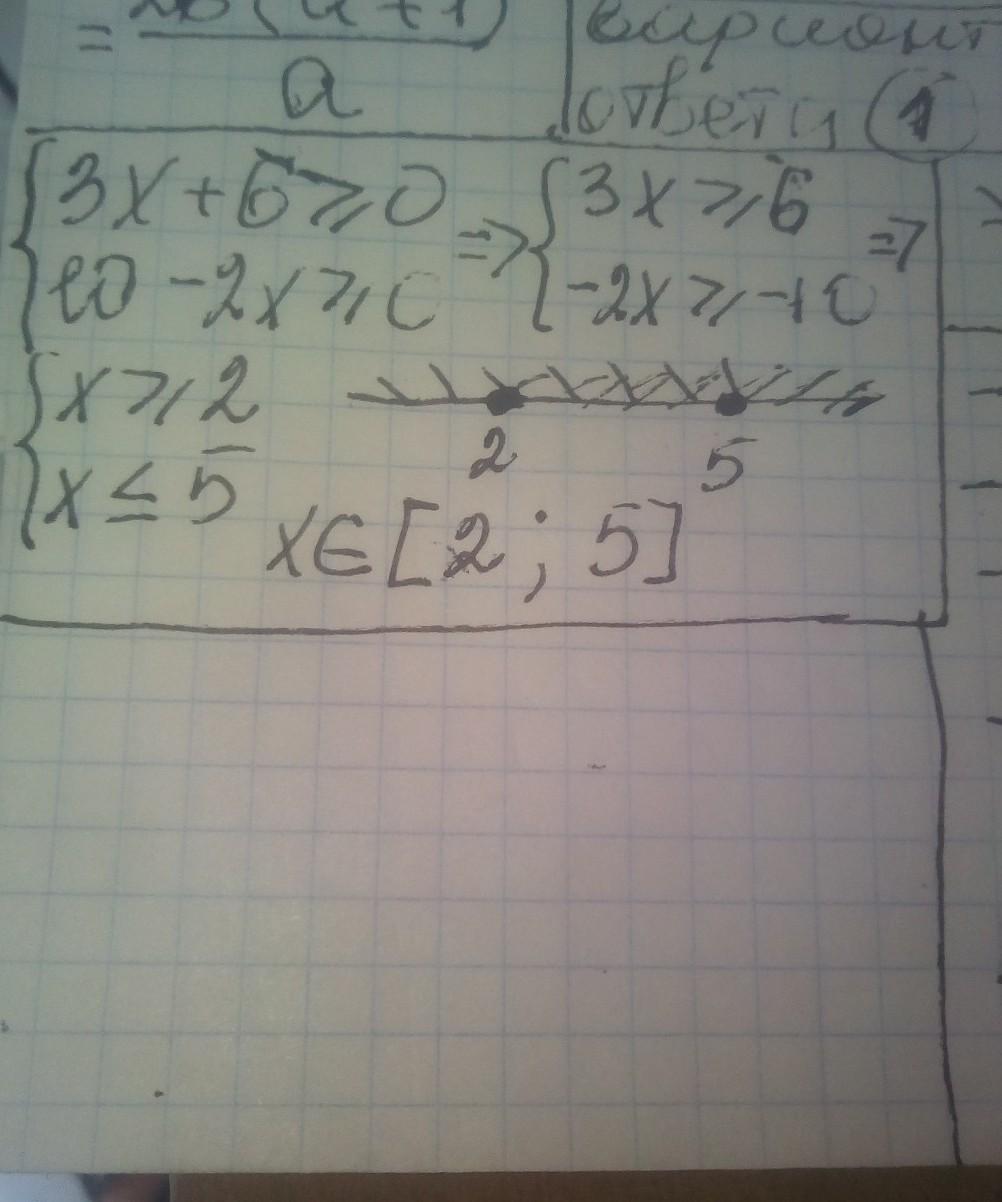 =
a
вариант
ответа 1
{ 3x + 6 ⩾ 0
10 - 2x ⩾ 0
=> { 3x ⩾ 6
-2x ⩾ -10 =>
{ x ⩾ 2
x ≤ 5
2 5
x∈[2 ; 5]